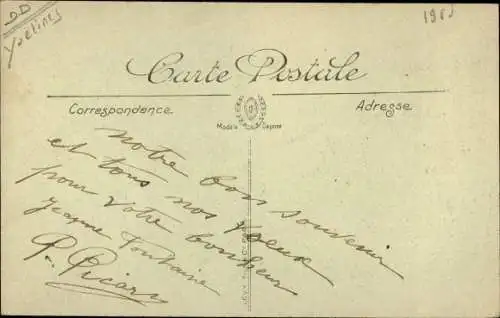 D.D
Yvelines
Carte Postale
Correspondence
Adresse
Modèle Déposé
Notre bon souvenir
et tous nos voeux
pour votre bonheur
Jeanne Fontaine
P. Picary